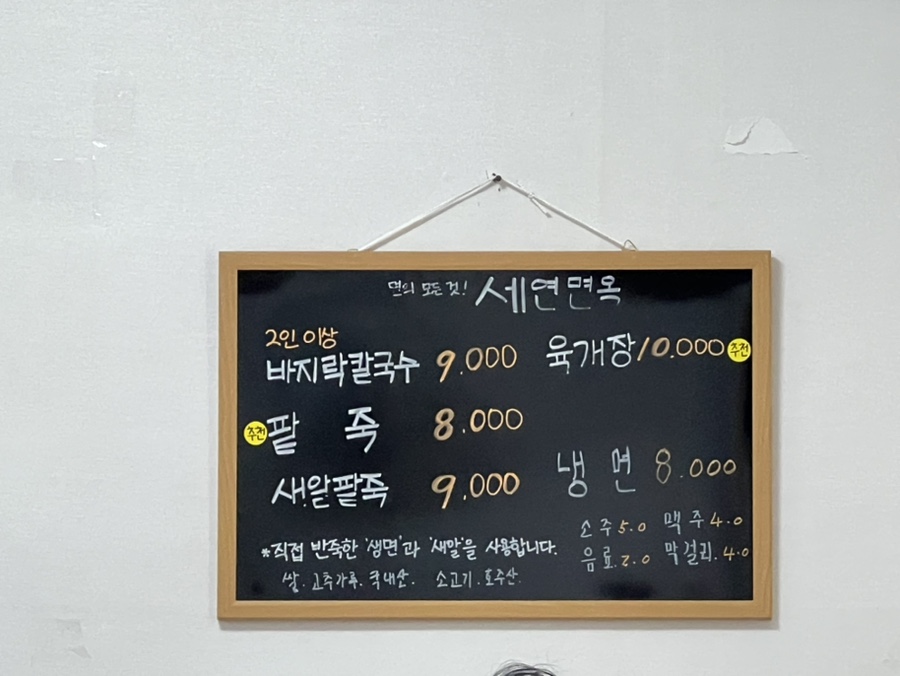 면의 모든 것! 세연면옥
2인 이상
바지락칼국수 9.000
추천 팥 죽 8.000
새알팥죽 9.000
육개장 10.000 추천
냉 면 8.000
소주 5.0 맥주 4.0
음료. 2.0 막걸리. 4.0
*직접 반죽한 '생면'과 '새알'을 사용합니다.
쌀. 고추가루. 국내산. 소고기. 호주산.